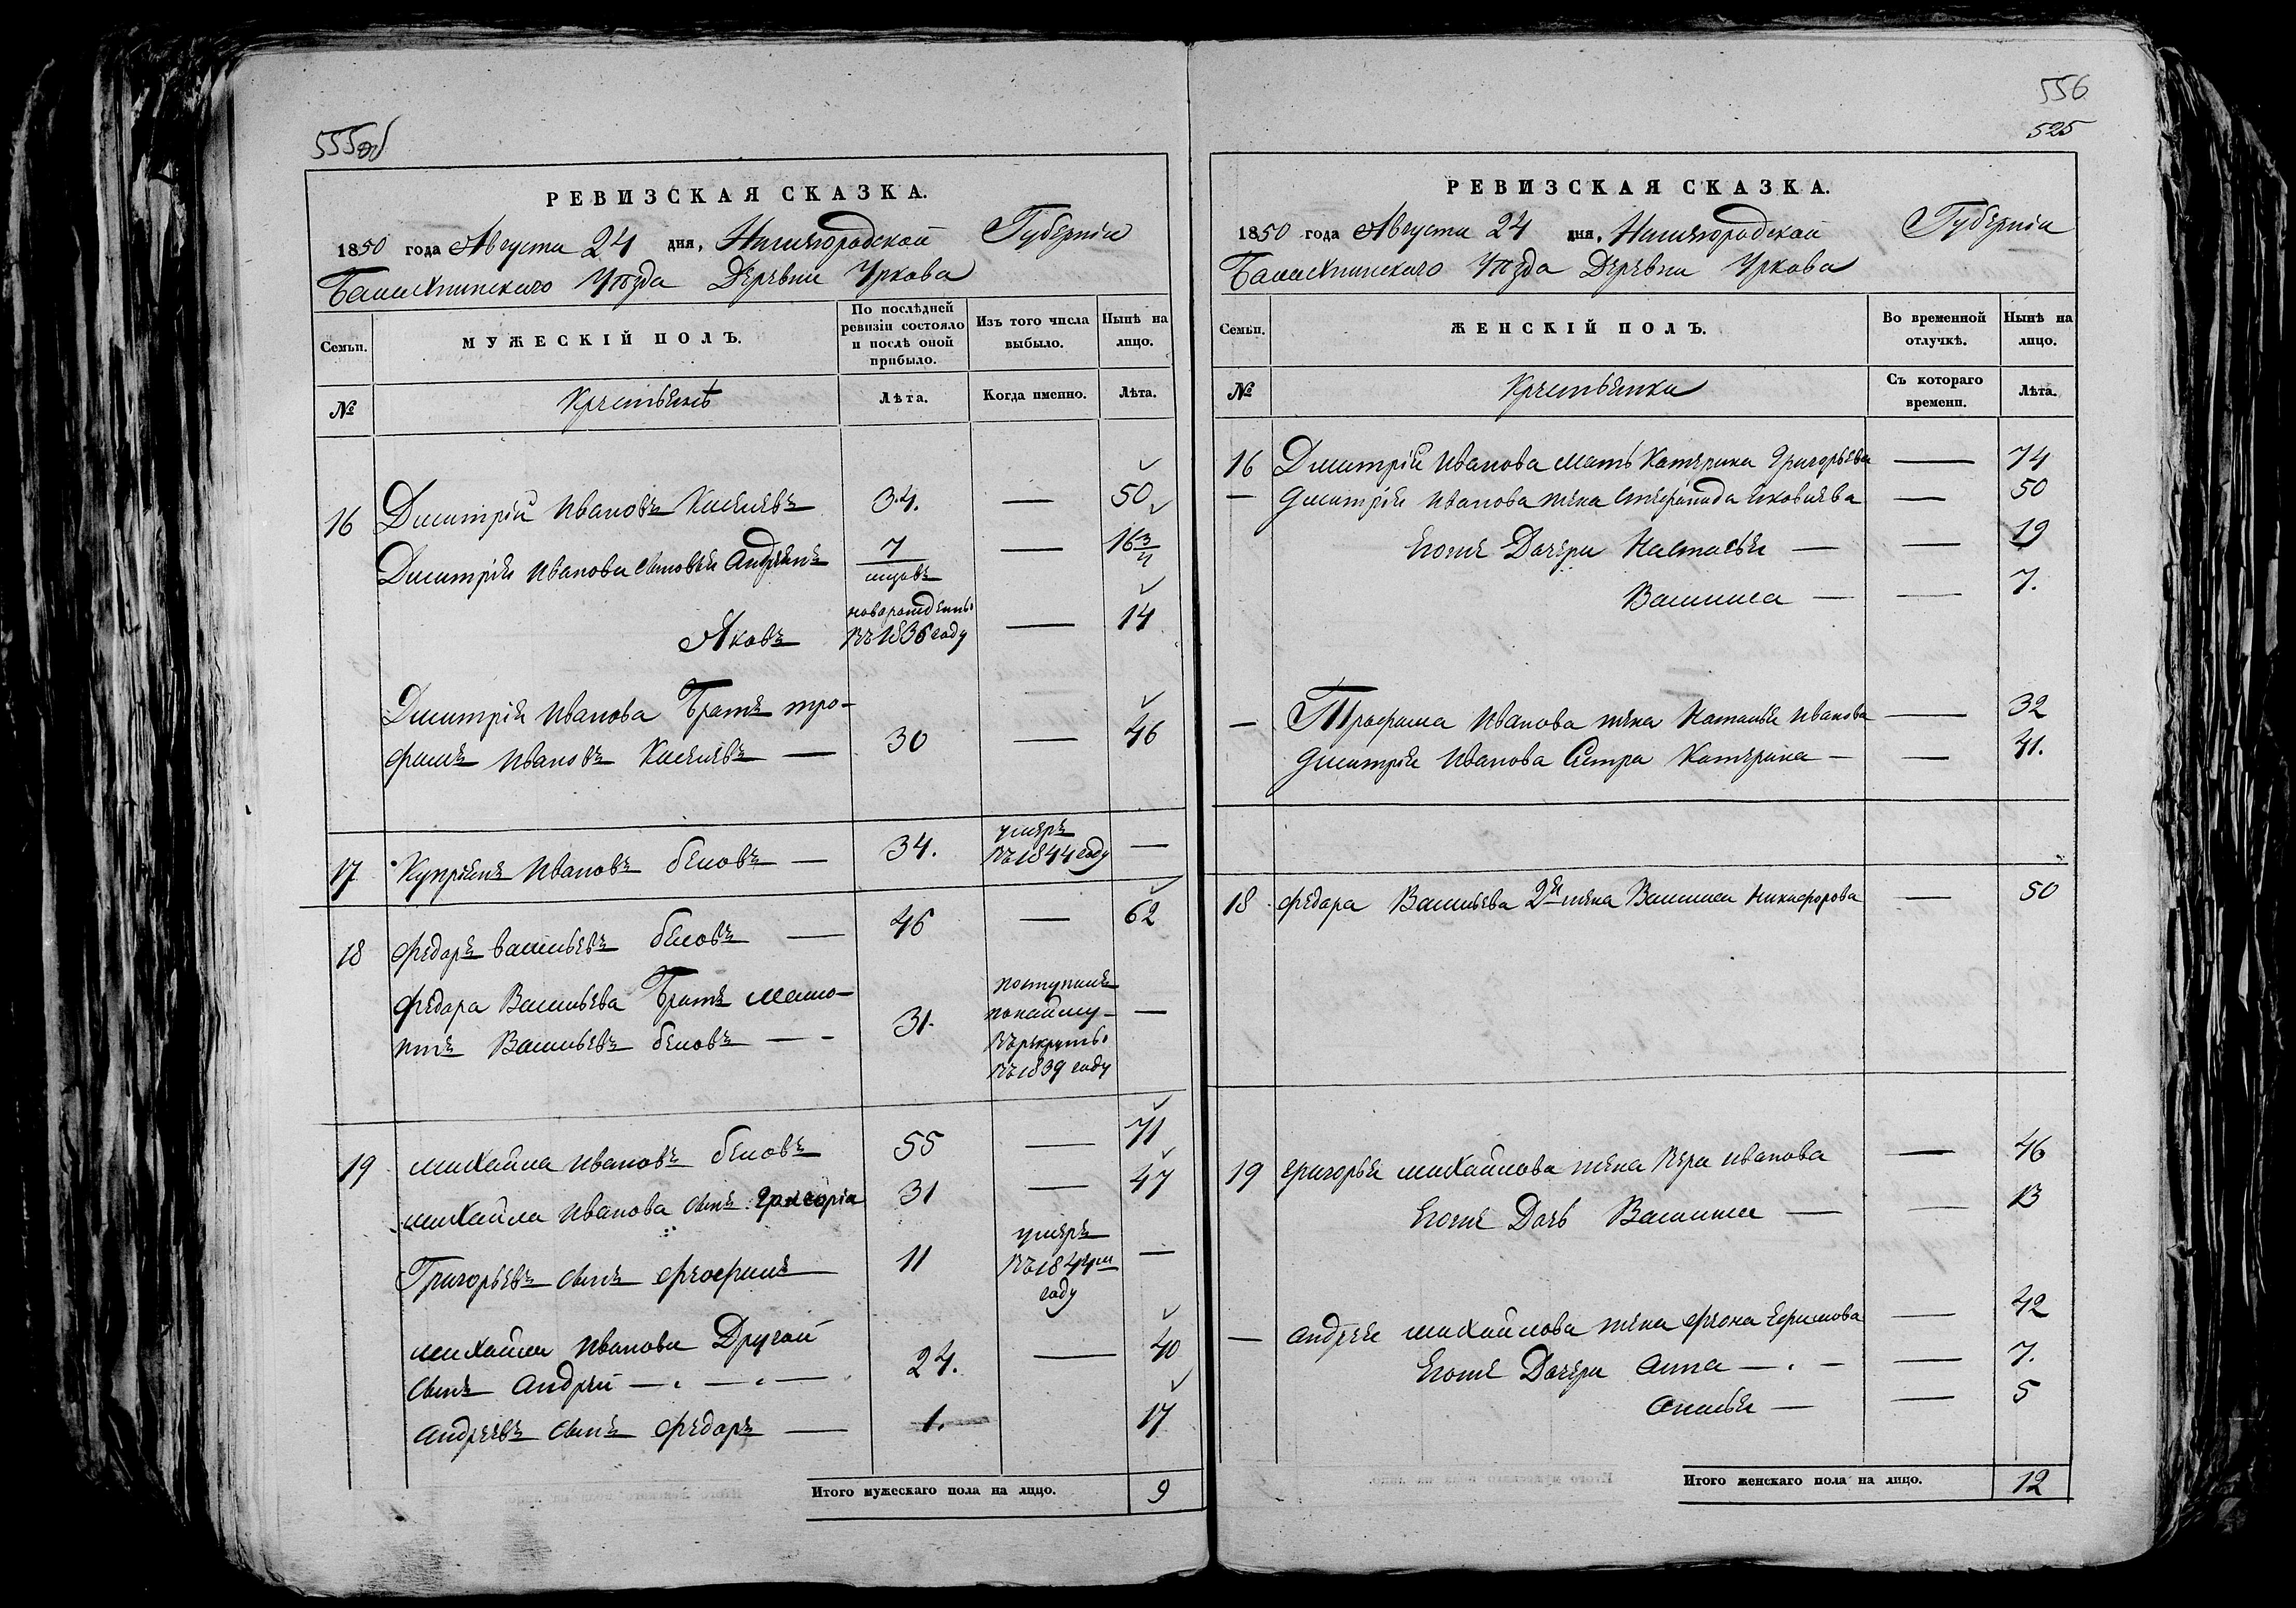 555об
РЕВИЗСКАЯ СКАЗКА.
1850 года Августа 24 дня, Нижегородской Губерніи
Балахнинскаго Уѣзда Деревни Уркова
Семьи.
МУЖЕСКІЙ ПОЛЪ.
По послѣдней ревизіи состояло и послѣ оной прибыло.
Изъ того числа выбыло.
Нынѣ на лицо.
№
Крестьянъ
Лѣта.
Когда именно.
Лѣта.
16 Дмитрій Ивановъ Киселевъ 34. — 50
Дмитрія Иванова сыновья Андреянъ 7 мѣсяцовъ — 16 3/4
Яковъ новорожденъ въ 1836 году — 14
Дмитрія Иванова Братъ Тро-
фимъ Ивановъ Киселевъ — 30 — 46
17 Купріянъ Ивановъ бѣловъ — 34. умеръ въ 1844 году —
18 Федоръ Васильевъ бѣловъ — 46 — 62
Федора Васильева Братъ
Васильевъ бѣловъ — - 31. поступилъ по найму въ рекруты въ 1839 году —
19 Михайла Ивановъ бѣловъ 55 — 71
Михайла Иванова сынъ Григорій 31 — 47
Григорьевъ сынъ Феофанъ 11 умеръ въ 1844м году —
Михайла Иванова Другой
сынъ Андрей — . — . — 24. — 40
Андреевъ сынъ Федоръ — 1. 17
Итого мужескаго пола на лицо. 9
556
525
РЕВИЗСКАЯ СКАЗКА.
1850 года Августа 24 дня, Нижегородской Губерніи
Балахнинскаго Уѣзда Деревни Уркова
Семьи.
ЖЕНСКІЙ ПОЛЪ.
Во временной отлучкѣ.
Нынѣ на лицо.
№
Крестьянки
Съ котораго времени.
Лѣта.
16 Дмитрія Иванова мать Катерина Григорьева — 74
— Дмитрія Иванова жена Степанида Яковлева — 50
Егоже Дочери Настасья — — 19
Василиса — — 7.
— Трофима Иванова жена Наталья Иванова — 32
Дмитрія Иванова Сестра Катерина — — 41.
18 Федора Васильева 2я жена Василиса Никифорова — 50
19 Григорья Михайлова жена Вера Иванова — 46
Егоже Дочь Василиса — — 13
— Андрея Михайлова жена Ефимова — 42
Егоже Дочери Анна — . — — 7.
Анисья — — 5
Итого женскаго пола на лицо. 12